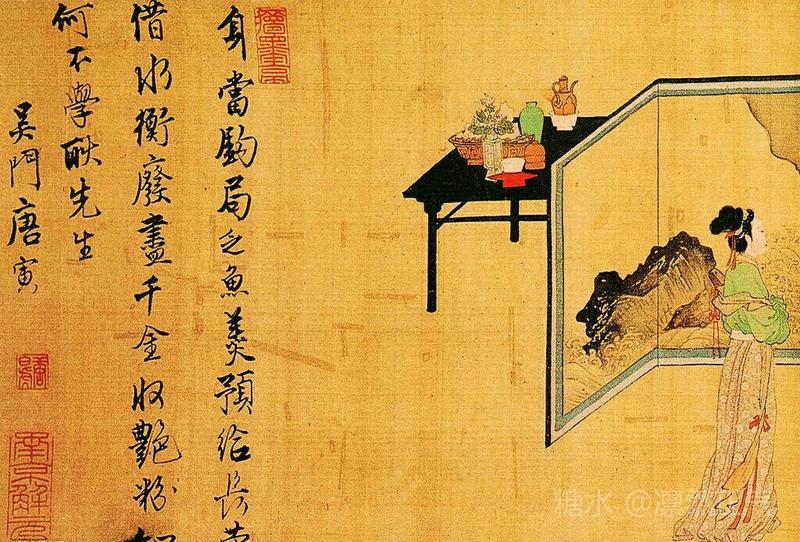 身當鈞局乏魚羹預給長
借水衡廢盡千金收艷粉
何不學耿先生
吳門唐寅
糖水 @凛